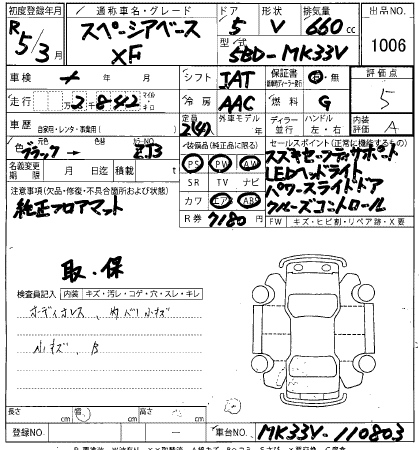 初度登録年月 通称車名・グレード ドア 形状 排気量 出品NO.
R5/3月 スペーシアベース XF 5 V 660cc 1006
型式 5BD-MK33V
車検 年 月 シフト IAT 保証書 有・無 評価点
走行 2842 マイル キロ 冷房 AAC 燃料 G 5
車歴 自家用・レンタ・事業用( ) 定員 2(4)人 外車モデル 年 ディーラー 並行 ハンドル 左・右 内装評価 A
色 ブラック → 元色 色替 カラーNO. ZJ3
装備品(純正品に限る) セールスポイント(正常に機能するもの)
名義変更期限 月 日 積載 t PS PW AW スズキセーフティサポート
SR TV ナビ LEDヘッドライト
カワ エアB ABS パワースライドドア
R券 7180円 クルーズコントロール
注意事項(欠品・修復・不具合箇所および状態) FW キズ・ヒビ割・リペア跡・X要
純正フロアマット
取・保
検査員記入 内装 キズ・汚レ・コゲ・穴・スレ・キレ
小キズ、B
長さ cm 幅 cm 高さ cm
登録NO. 車台NO. MK33V-110803